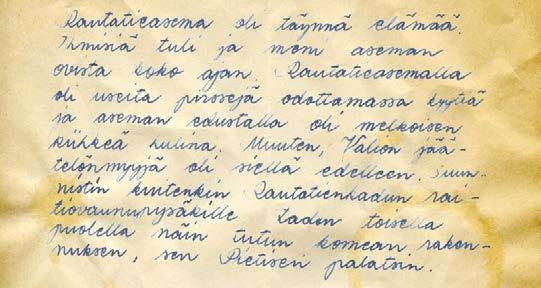 Rautatieasema oli täynnä elämää.
Ihmisiä tuli ja meni aseman
ovista koko ajan. Rautatieasemalla
oli useita pirssejä odottamassa kyytiä
ja aseman edustalla oli melkoisen
kiihkeä hulina. Muuten, Valion jää-
telönmyyjä oli siellä edelleen. Suun-
nistin kuitenkin Rautatienkadun rai-
tiovaunupysäkille. Kadun toisella
puolella näin tutun komean raken-
nuksen, sen Pietisen palatsin.